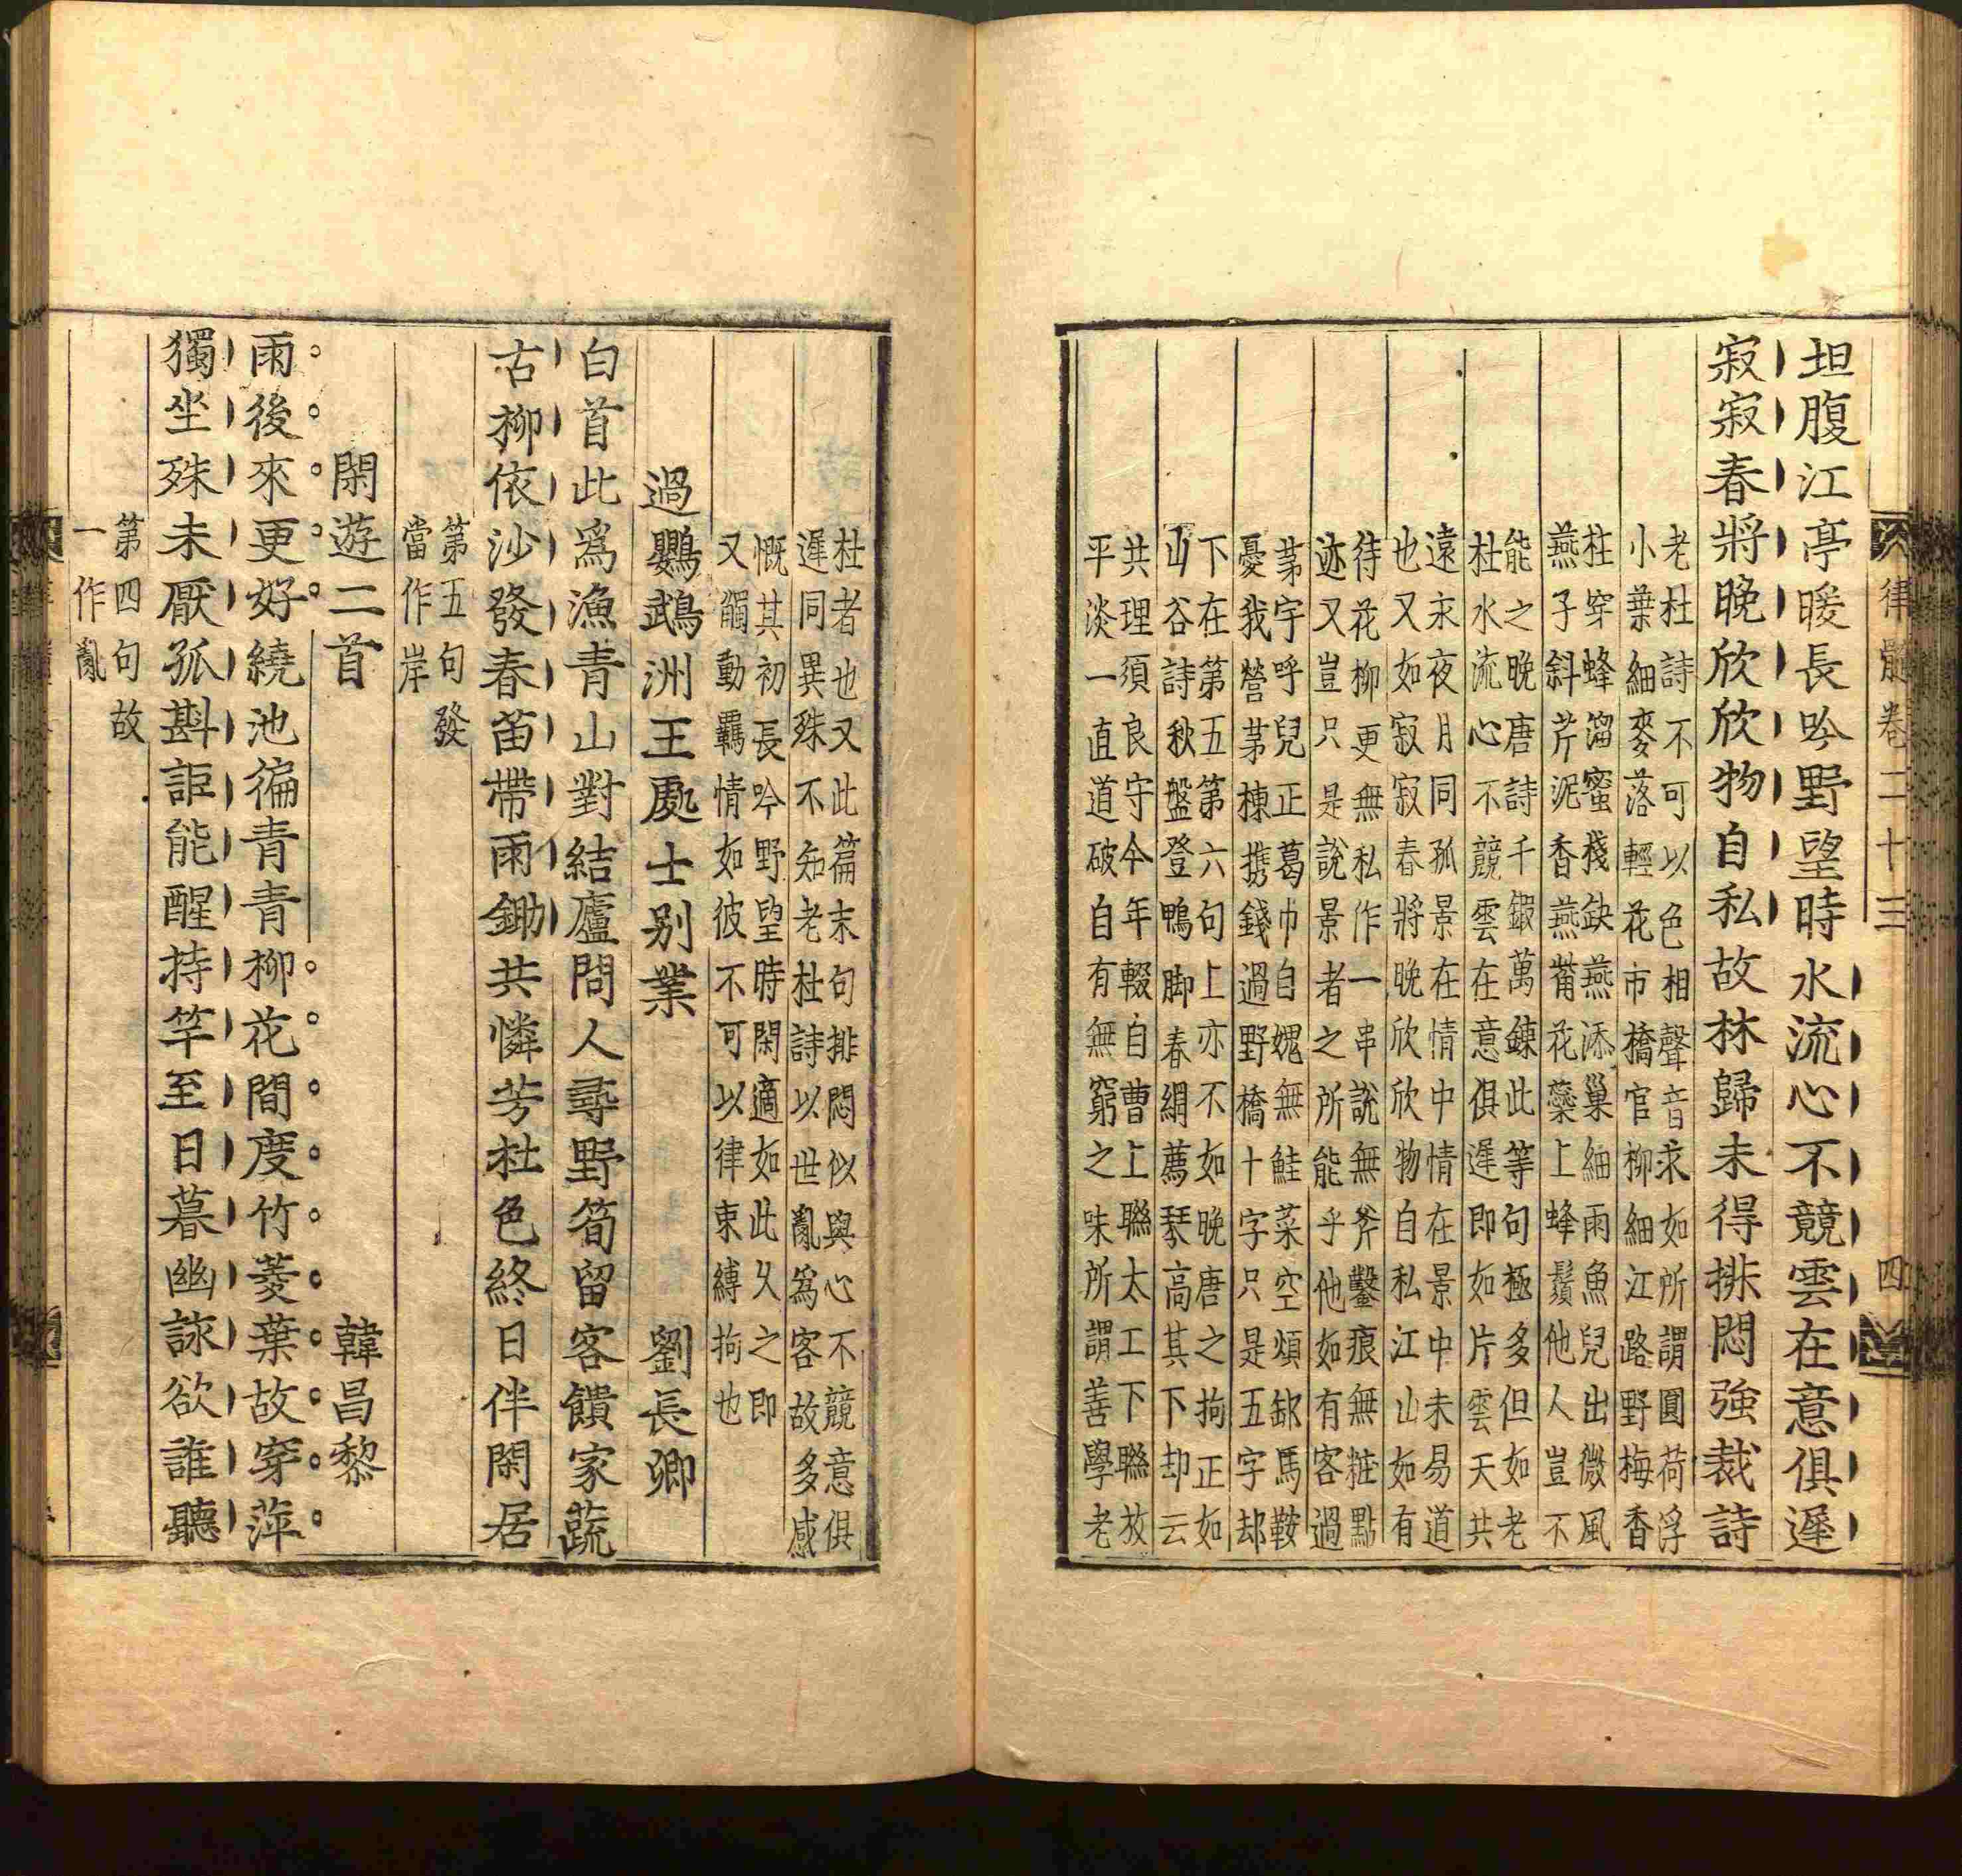 律髓卷二十三 四
坦腹江亭暖長吟野望時水流心不競雲在意俱遲
寂寂春將晚欣欣物自私故林歸未得排悶強裁詩
老杜詩不可以色相聲音求如所謂圓荷浮
小葉細麥落輕花市橋官柳細江路野梅香
柱穿蜂溜蜜棧缺燕添巢細雨魚兒出微風
燕子斜芹泥香燕觜花蘂上蜂鬚他人豈不
能之晚唐詩千鍜萬鍊此等句極多但如老
杜水流心不競雲在意俱遲即如片雲天共
遠永夜月同孤景在情中情在景中未易道
也又如寂寂春將晚欣欣物自私江山如有
待花柳更無私作一串說無斧鑿痕無粧點
迹又豈只是說景者之所能乎他如有客過
茅宇呼兒正葛巾自媿無鮭菜空煩卸馬鞍
憂我營茅棟携錢過野橋十字只是五字却
下在第五第六句上亦不如晚唐之拘正如
山谷詩秋盤登鴨脚春網薦琴高其下却云
共理須良守今年輟自曹上聯太工下聯放
平淡一直道破自有無窮之味所謂善學老
杜者也又此篇末句排悶似與心不競意俱
遲同異殊不知老杜詩以世亂為客故多感
慨其初長吟野望時閑適如此久之即
又觸動羈情如彼不可以律束縛拘也
過鸚鵡洲王處士别業 劉長卿
白首此為漁青山對結廬問人尋野筍留客饋家蔬
古柳依沙發春苗帶雨鋤共憐芳杜色終日伴閑居
第五句發
當作岸
閑遊二首 韓昌黎
雨後來更好繞池徧青青柳花間度竹菱葉故穿萍
獨坐殊未厭孤斟詎能醒持竿至日暮幽詠欲誰聽
第四句故
一作亂